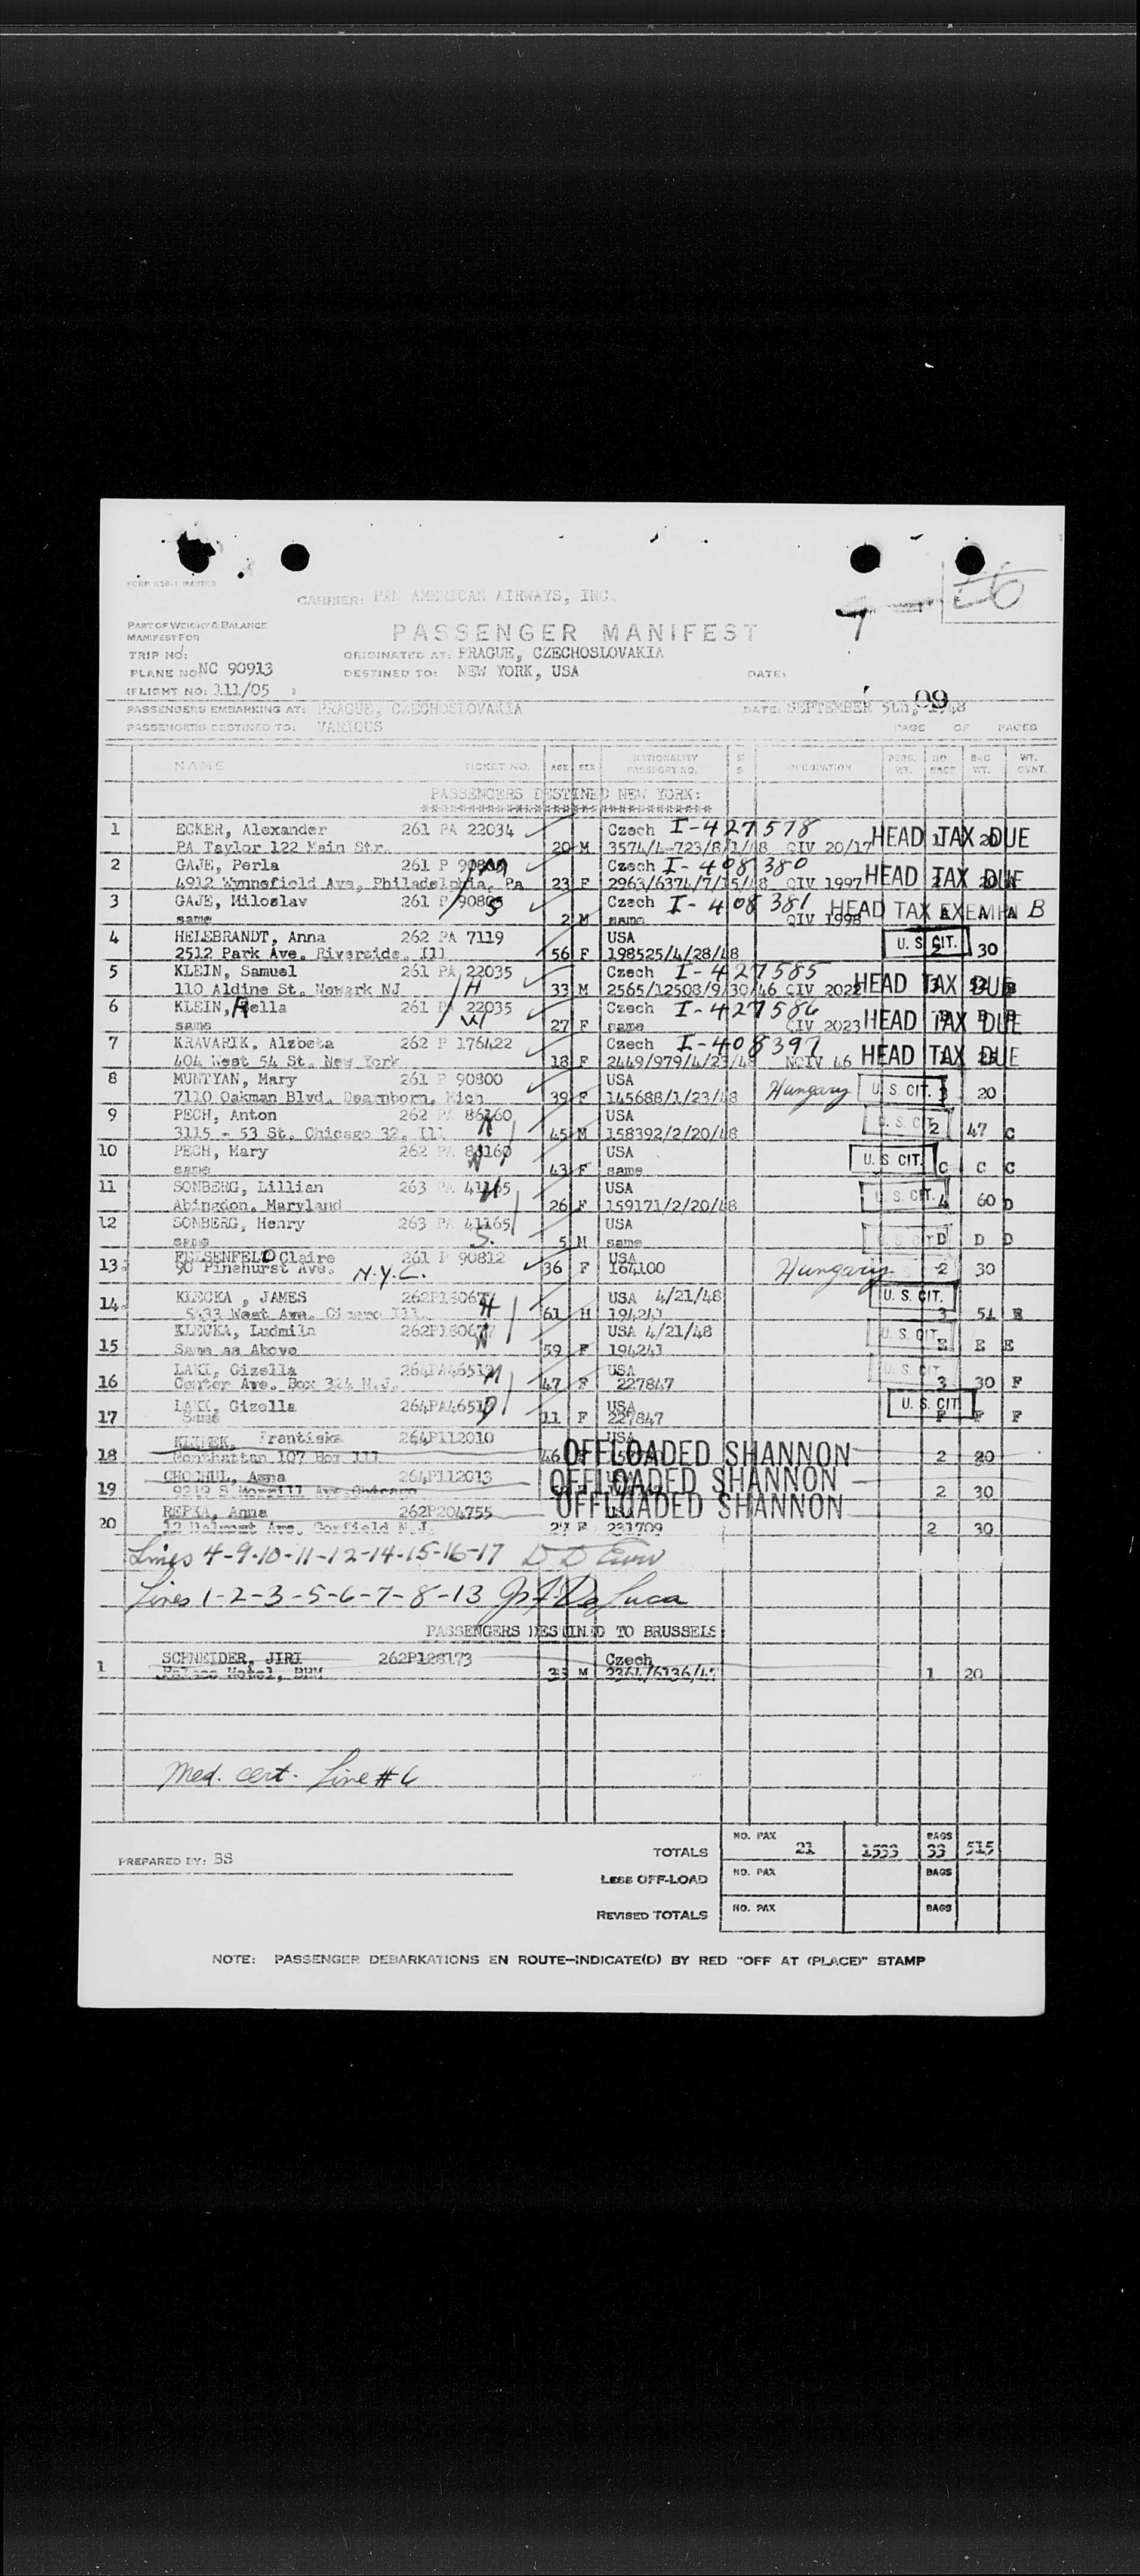 FORM 816-1 MASTER
CARRIER: PAN AMERICAN AIRWAYS, INC.
PART OF WEIGHT & BALANCE
MANIFEST FOR
PASSENGER MANIFEST
TRIP NO:
ORIGINATED AT: PRAGUE, CZECHOSLOVAKIA
PLANE NO: NC 90913
DESTINED TO: NEW YORK, USA
DATE:
(FLIGHT NO: 111/05 )
09
PASSENGERS EMBARKING AT: PRAGUE, CZECHOSLOVAKIA
DATE: SEPTEMBER 5th, 1948
PASSENGERS DESTINED TO: VARIOUS
PAGE OF PAGES
NAME TICKET NO. AGE SEX NATIONALITY PASSPORT NO. M S OCCUPATION PERS. WT. NO. BAGS BAG WT. WT. CVNT.
PASSENGERS DESTINED NEW YORK:
1 ECKER, Alexander 261 PA 22034 Czech I-427578
PA Taylor 122 Main Str. 20 M 3574/4-723/8/1/48 QIV 20/17 HEAD TAX DUE
2 GAJE, Perla 261 P Czech I-408380
4912 Wynnefield Ave, Philadelphia, Pa 23 F 2963/6374/7/15/48 QIV 1997 HEAD TAX DUE
3 GAJE, Miloslav 261 P Czech I-408381
same 2 M same QIV 1998 HEAD TAX EXEMPT B
4 HELEBRANDT, Anna 262 PA 7119 USA
2512 Park Ave. Riverside, Ill 56 F 198525/4/28/48 U. S. CIT. 30
5 KLEIN, Samuel 261 PA 22035 Czech I-427585
110 Aldine St. Newark NJ H 33 M 2565/12508/9/30/46 QIV 2022 HEAD TAX DUE
6 KLEIN, Bella 261 PA 22035 Czech I-427586
same W 27 F same QIV 2023 HEAD TAX DUE
7 KRAVARIK, Alzbeta 262 P 176422 Czech I-408397
404 West 54 St. New York 18 F 2449/979/4/23/48 NQIV 46 HEAD TAX DUE
8 MUNTYAN, Mary 261 P 90800 USA
7110 Oakman Blvd. Dearnborn, Mich 39 F 145688/1/23/48 Hungary U. S. CIT. 3 20
9 PECH, Anton 262 PA 86160 USA
3115 - 53 St. Chicago 32, Ill H 45 M 158392/2/20/48 U. S. CIT. 2 47 C
10 PECH, Mary 262 PA 86160 USA
same W 43 F same U. S. CIT. C C C
11 SONBERG, Lillian 263 PA 41165 USA
Abingdon, Maryland 26 F 159171/2/20/48 U. S. CIT. 4 60 D
12 SONBERG, Henry 263 PA 41165 USA
same S. 5 M same U. S. CIT. D D D
13. FELSENFELD Claire 261 P 90812 USA
90 Pinehurst Ave. N.Y.C. 36 F 164100 Hungary 2 30
14. KLECKA , JAMES USA 4/21/48 U. S. CIT.
5433 West Ave. Cicero Ill. H 61 M 194241 3 54 E
KLECKA, Ludmila USA 4/21/48 U. S. CIT.
15 Same as Above W 59 F 194241 E E E
LAKI, Gizella USA U. S. CIT.
16 Center Ave. Box 324 N.J. M 47 F 227847 3 30 F
LAKI, Gizella USA U. S. CIT.
17 Same D 11 F 227847 F F F
KLIMEK, Frantiska 264P112010
18 46 OFFLOADED SHANNON 2 20
CHOCHUL, Anna 264P112013
19 OFFLOADED SHANNON 2 30
REPKA, Anna 262P204755 OFFLOADED SHANNON
20 12 Belmont Ave, Garfield N.J. 27 F 231709 2 30
Lines 4-9-10-11-12-14-15-16-17
Lines 1-2-3-5-6-7-8-13
PASSENGERS DESTINED TO BRUSSELS
SCHNEIDER, JIRI 262P128173 Czech
1 Palace Hotel, 35 M 2364/6136/47 1 20
Med. cert. Line # 6
PREPARED BY: BS
TOTALS NO. PAX 21 1533 BAGS 33 515
LESS OFF-LOAD NO. PAX BAGS
REVISED TOTALS NO. PAX BAGS
NOTE: PASSENGER DEBARKATIONS EN ROUTE—INDICATE(D) BY RED "OFF AT (PLACE)" STAMP